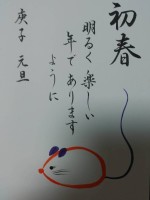 初春
明るく楽しい
年であります
ように
庚子 元旦